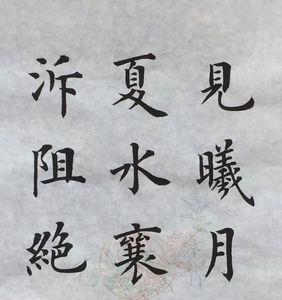 見曦月
夏水襄
泝阻絶